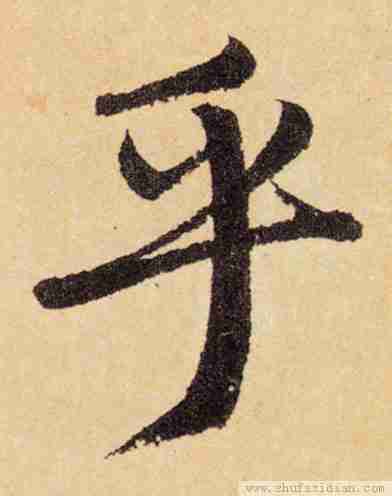 乎
www.shufazidian.com